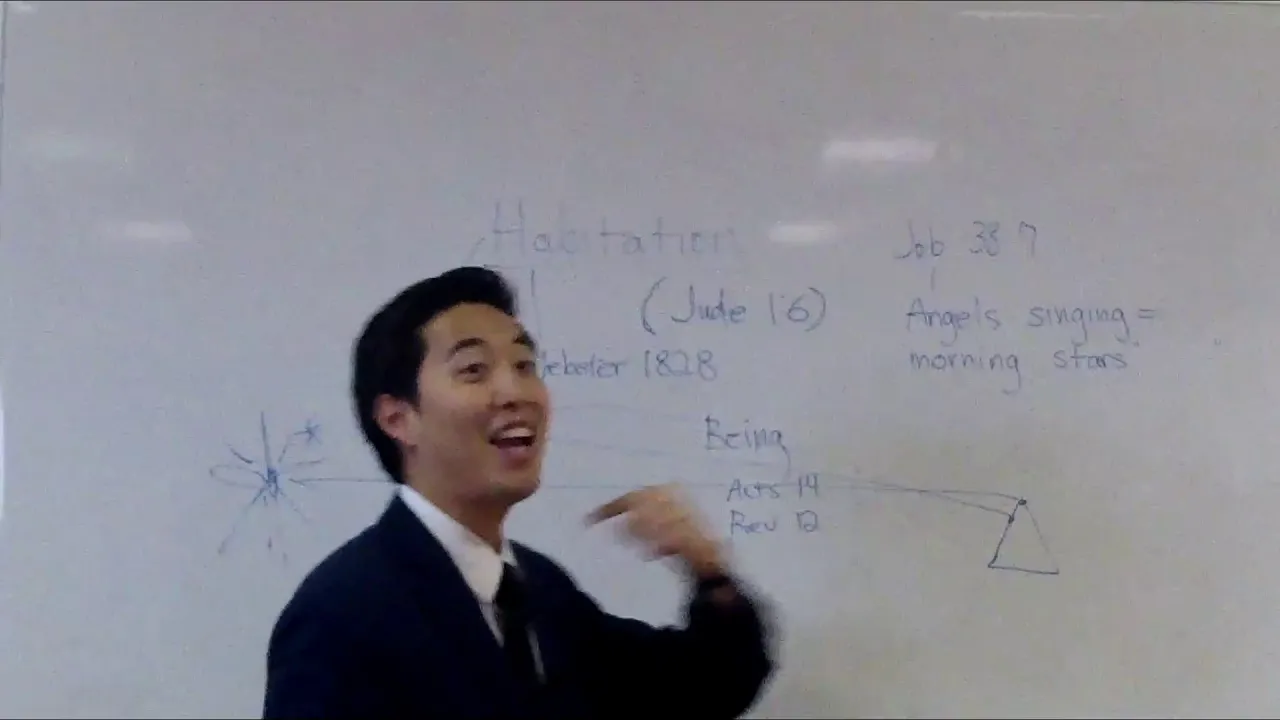 Habitation
(Jude 1:6)
Webster 1828
Job 38 7
Angels singing =
morning stars
Being
Acts 14
Rev 12